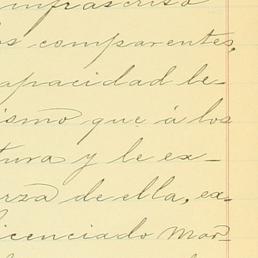 infrascrito
os comparentes,
apacidad le-
ismo que á los
tura y le ex-
erza de ella, ex-
icenciado Mar-